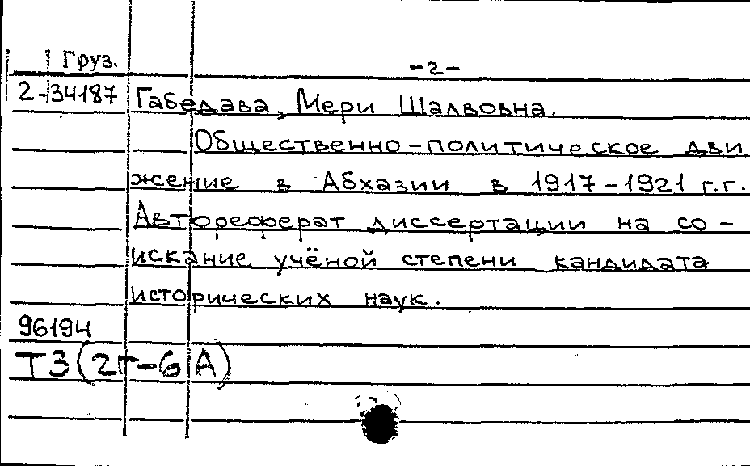 Груз. -2-
2-34187 Габедава, Мери Шалвовна.
Общественно-политическое дви
жение в Абхазии в 1917-1921 г.г.
Автореферат диссертации на со-
искание учёной степени кандидата
исторических наук.
96194
Т3(2Г-6А)